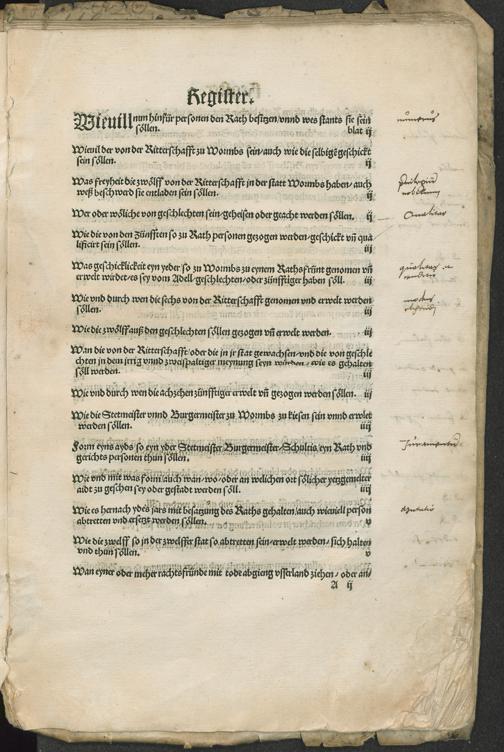 Register.
Wieuill nun hinfür personen den Rath besitzen/vnnd wes stants sie sein
söllen. blat ij
Wieuil der von der Ritterschafft zu Wormbs sein/auch wie die selbigẽ geschickt
sein söllen. ij
Was freyheit die zwölff von der Ritterschafft in der statt Wormbs haben/auch
weß beschwerd sie entladen sein söllen. ij
Wer oder wöliche von geschlechten sein/geheisen oder geacht werden söllen. ij
Wie die von den Zünfften so zu Rath personen gezogen werden/geschickt vñ qua
lificirt sein söllen. iij
Was geschicklickeit eyn yeder so zu Wormbs zu eynem Rathsfründt genomen vñ
erwelt würdet/es sey vom Adell/geschlechten/oder zünfftiger haben söll. iij
Wie vnd durch wen die sechs von der Ritterschafft genomen vnd erwelt werden
söllen. iij
Wie die zwölff auß den geschlechten söllen gezogen vñ erwelt werden. iij
Wan die von der Ritterschafft/oder die in jr stat gewachsen/vnd die von geschle
chten in dem jrrig vnnd zweispaltiger meynung seyn würden/wie es gehalten
söll werden. iij
Wie vnd durch wen die achzehen zünfftiger erwelt vñ gezogen werden söllen. iij
Wie die Stetmeister vnnd Burgermeister zu Wormbs zu kiesen sein vnnd erwelt
werden söllen. iiij
Form eyns ayds so eyn yder Stetmeister/Burgermeister/Schultis/eyn Rath vnd
gerichts personen thun söllen. iiij
Wie vnd mit was form/auch wan/wo/oder an welichen ort sölicher yetzgemelter
aidt zu geschen sey oder gestadt werden söll. iiij
Wie es hernach ydes jars mit besatzung des Raths gehalten/auch wieuiell person
abtretten vnd ersetzt werden söllen. v
Wie die zwelff so jn der zwelffer stat so abtretten sein/erwelt werden/sich halten
vnd thun söllen. v
Wan eyner oder meher rachtsfründe mit tode abgieng vsserland ziehen/oder an/
A ij
numerus
qualitas